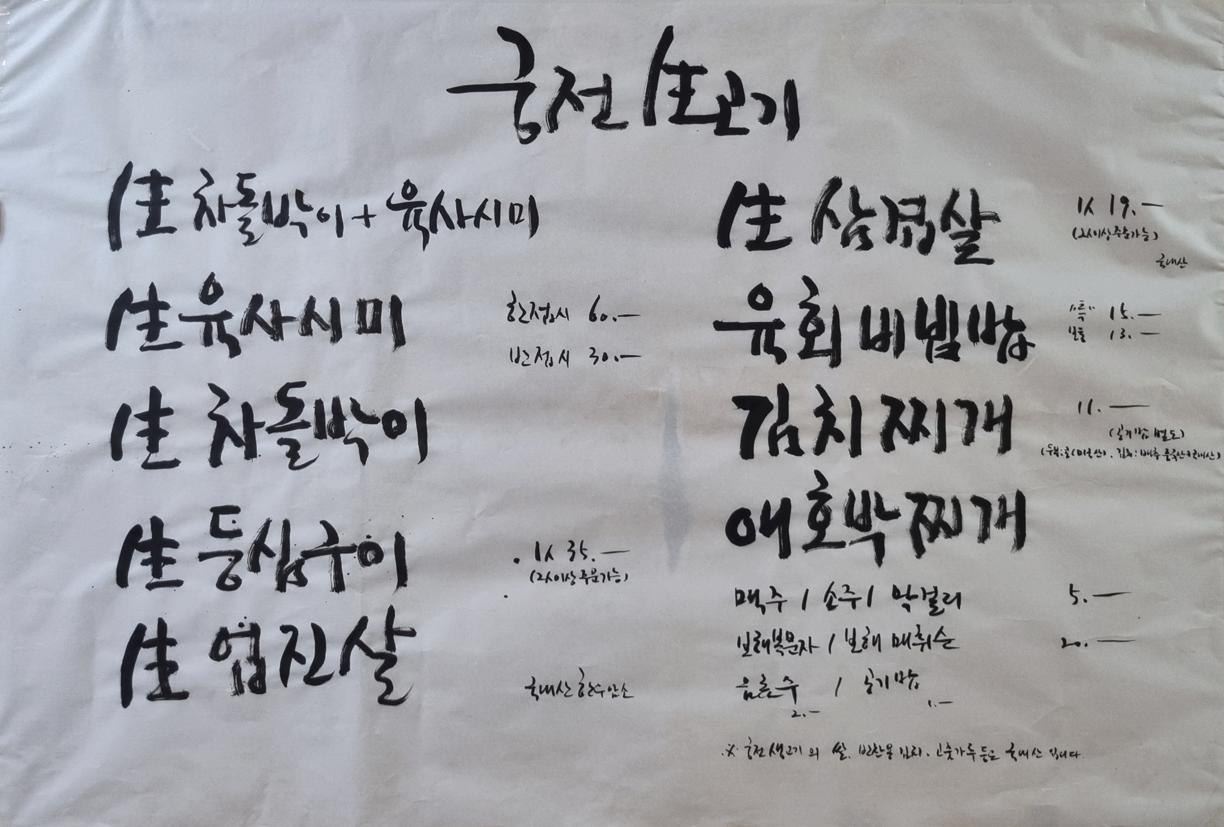 궁전 生고기
生 차돌박이 + 육사시미
生 육사시미
한접시 60.—
반접시 30.—
生 차돌박이
生 등심구이
1人 35.—
(2人이상 주문가능)
生 업진살
국내산 한우암소
生 삼겹살
1人 19.—
(2人이상 주문가능)
국내산
육회비빔밥
특 15.—
보통 13.—
김치찌개
11.—
(공기밥 별도)
(미국산), 김치: 배추 중국산
애호박찌개
맥주 / 소주 / 막걸리 5.—
보해복분자 / 보해 매취순 20.—
음료수 / 공기밥
2.— 1.—
※ 궁전생고기의 쌀, 반찬용 김치, 고춧가루 등은 국내산입니다.